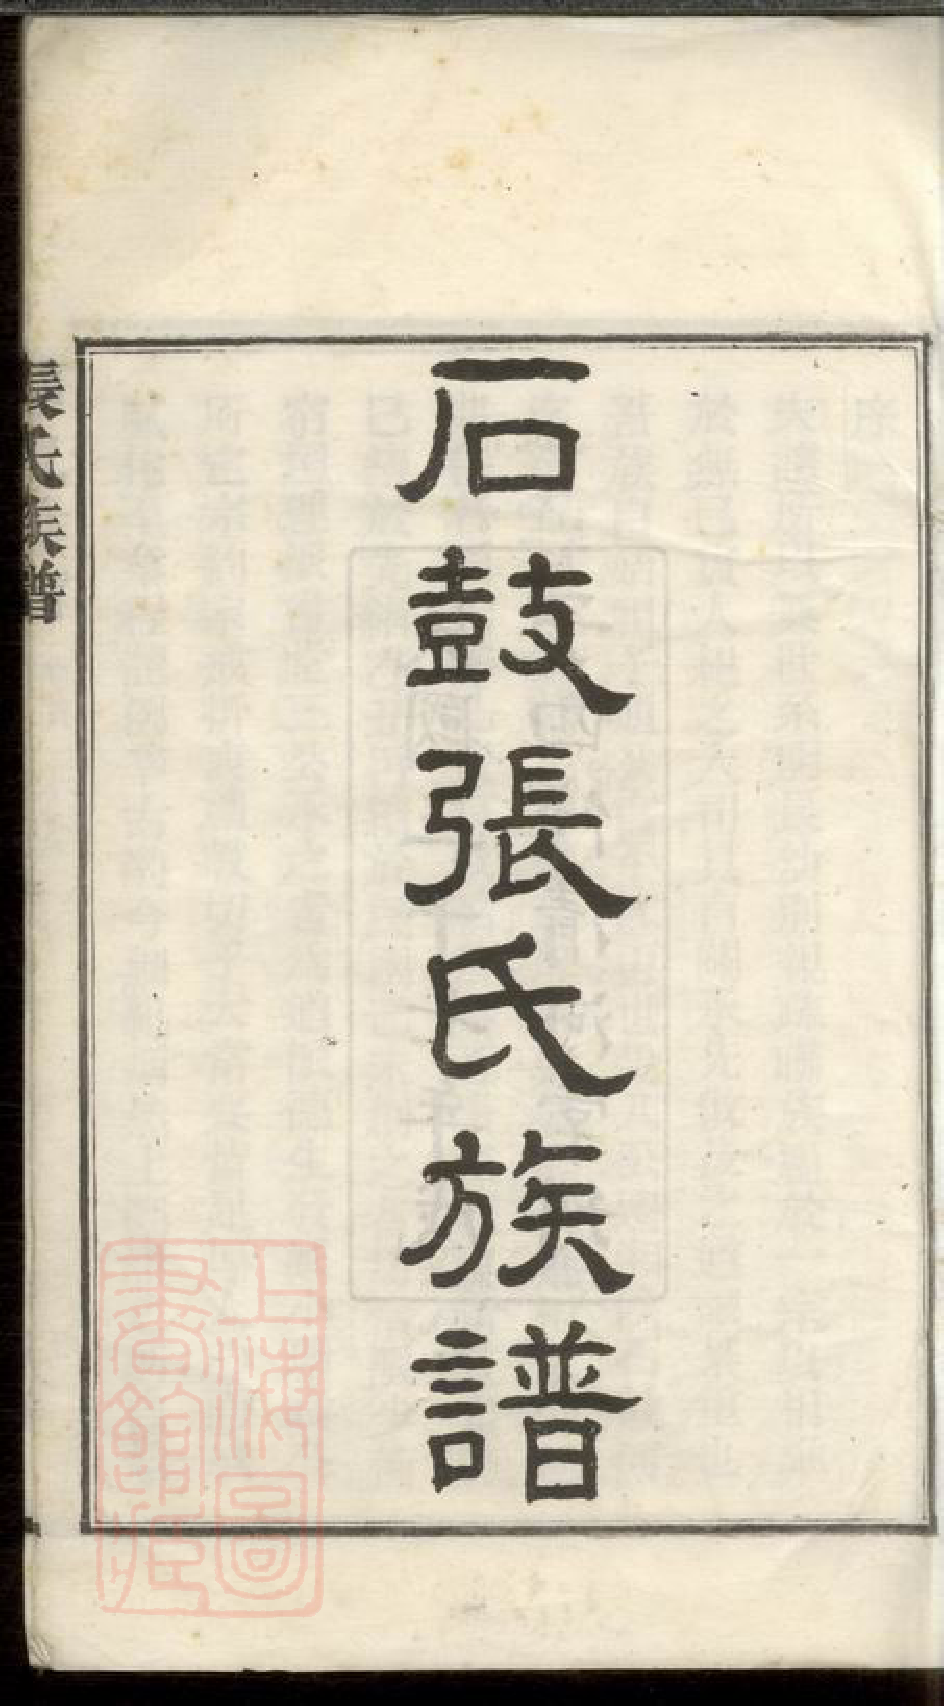 石鼓張氏族譜
張氏族譜
上海圖
書館藏